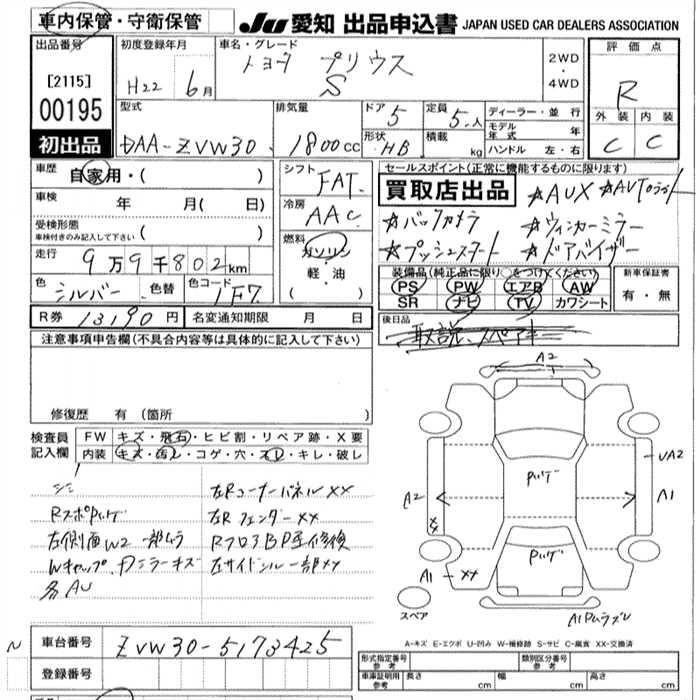 車内保管・守衛保管
JU 愛知 出品申込書 JAPAN USED CAR DEALERS ASSOCIATION
出品番号
[2115]
00195
初出品
初度登録年月
H22 6月
車名・グレード
トヨタ プリウス
S
2WD
・
4WD
評価点
R
外装 内装
C C
型式
DAA-ZVW30
排気量
1800cc
ドア 5
定員 5人
形状 HB
積載 kg
ディーラー・並行
モデル年式 年
ハンドル 左・右
車歴 自家用・( )
車検 年 月( 日)
受検形態
車検付きのみ記入して下さい ( )
走行 9万9千802km
色 シルバー 色替 色コード 1F7
シフト FAT
冷房 AAC
燃料 ガソリン
軽・油
( )
セールスポイント(正常に機能するものに限ります)
買取店出品 ☆AUX ☆AUTOライト
☆バックカメラ ☆ウィンカーミラー
☆プッシュスタート ☆ドアバイザー
装備品(純正品に限り○をつけてください)
PS PW エアB AW
SR ナビ TV カワシート
新車保証書
有・無
R券 13190円 名変通知期限 月 日
後日品
取説、スペアキー
注意事項申告欄(不具合内容等は具体的に記入して下さい)
修復歴 有 (箇所 )
検査員記入欄
FW キズ・飛石・ヒビ割・リペア跡・X要
内装 キズ・汚レ・コゲ・穴・スレ・キレ・破レ
シミ
左RコーナーパネルXX
RスポPハゲ
左RフェンダーXX
左側面W2 一部ムラ
RフロアBP歪修検
Wキャップ、Dミラーキズ
左サイドシル一部XX
各AU
A2
Pハゲ
UA2
A2
A1
XX
Pハゲ
A1 XX
スペア
A1Pムラズレ
A-キズ E-エクボ U-凹み W-補修跡 S-サビ C-腐食 XX-交換済
車台番号 ZVW30-5173425
登録番号
形式指定番号 参考
類別区分番号 参考
車庫証明用 参考 長さ cm 幅 cm 高さ cm